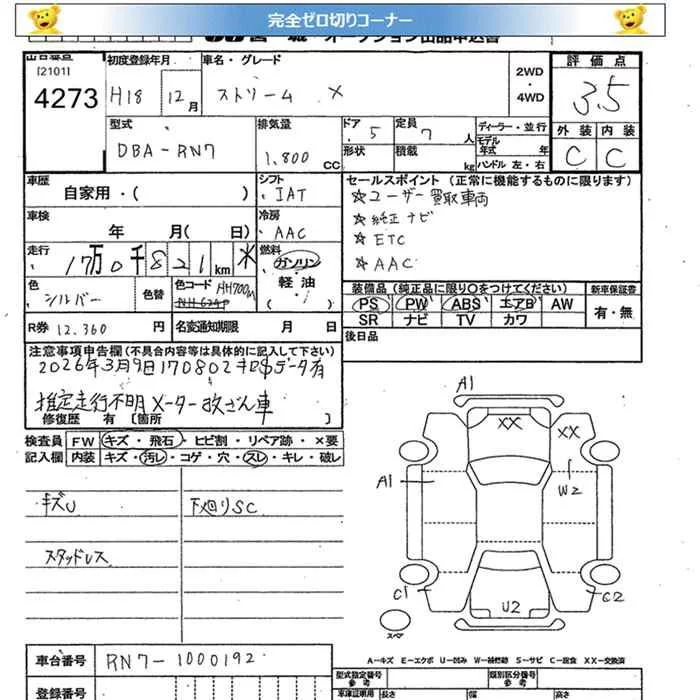 完全ゼロ切りコーナー
オークション出品申込書
[2101]
4273
初度登録年月
H18 12月
車名・グレード
ストリーム X
2WD
・
4WD
評価点
3.5
外装 内装
C C
型式
DBA-RN7
排気量
1,800 CC
ドア 5
定員 7 人
形状
積載 kg
ディーラー・並行
モデル
年式 年
ハンドル 左・右
車歴
自家用・( )
シフト
IAT
セールスポイント (正常に機能するものに限ります)
☆ユーザー買取車両
☆純正ナビ
☆ETC
☆AAC
車検
年 月( 日)
冷房
AAC
走行
17万0千821km
燃料
ガソリン
軽油
( )
色
シルバー
色替
色コード
NH700M
NH624P
装備品(純正品に限り○をつけてください)
PS PW ABS エアB AW
SR ナビ TV カワ
新車保証書
有・無
R券 12,360 円
名変通知期限 月 日
後日品
注意事項申告欄(不具合内容等は具体的に記入して下さい)
2026年3月9日170802キロSデータ有
推定走行不明 メーター改ざん車
修復歴 有 [箇所 ]
検査員 FW キズ・飛石・ヒビ割・リペア跡・×要
記入欄 内装 キズ・汚レ・コゲ・穴・スレ・キレ・破レ
キズU
下廻りSC
スタッドレス
A1
XX
XX
A1
W2
C1
C2
U2
スペア
A-キズ E-エクボ U-凹み W-補修跡 S-サビ C-腐食 XX-交換済
車台番号
RN7-1000192
登録番号
型式指定番号
参考
類別区分番号
参考
車庫証明用
長さ 幅 高さ